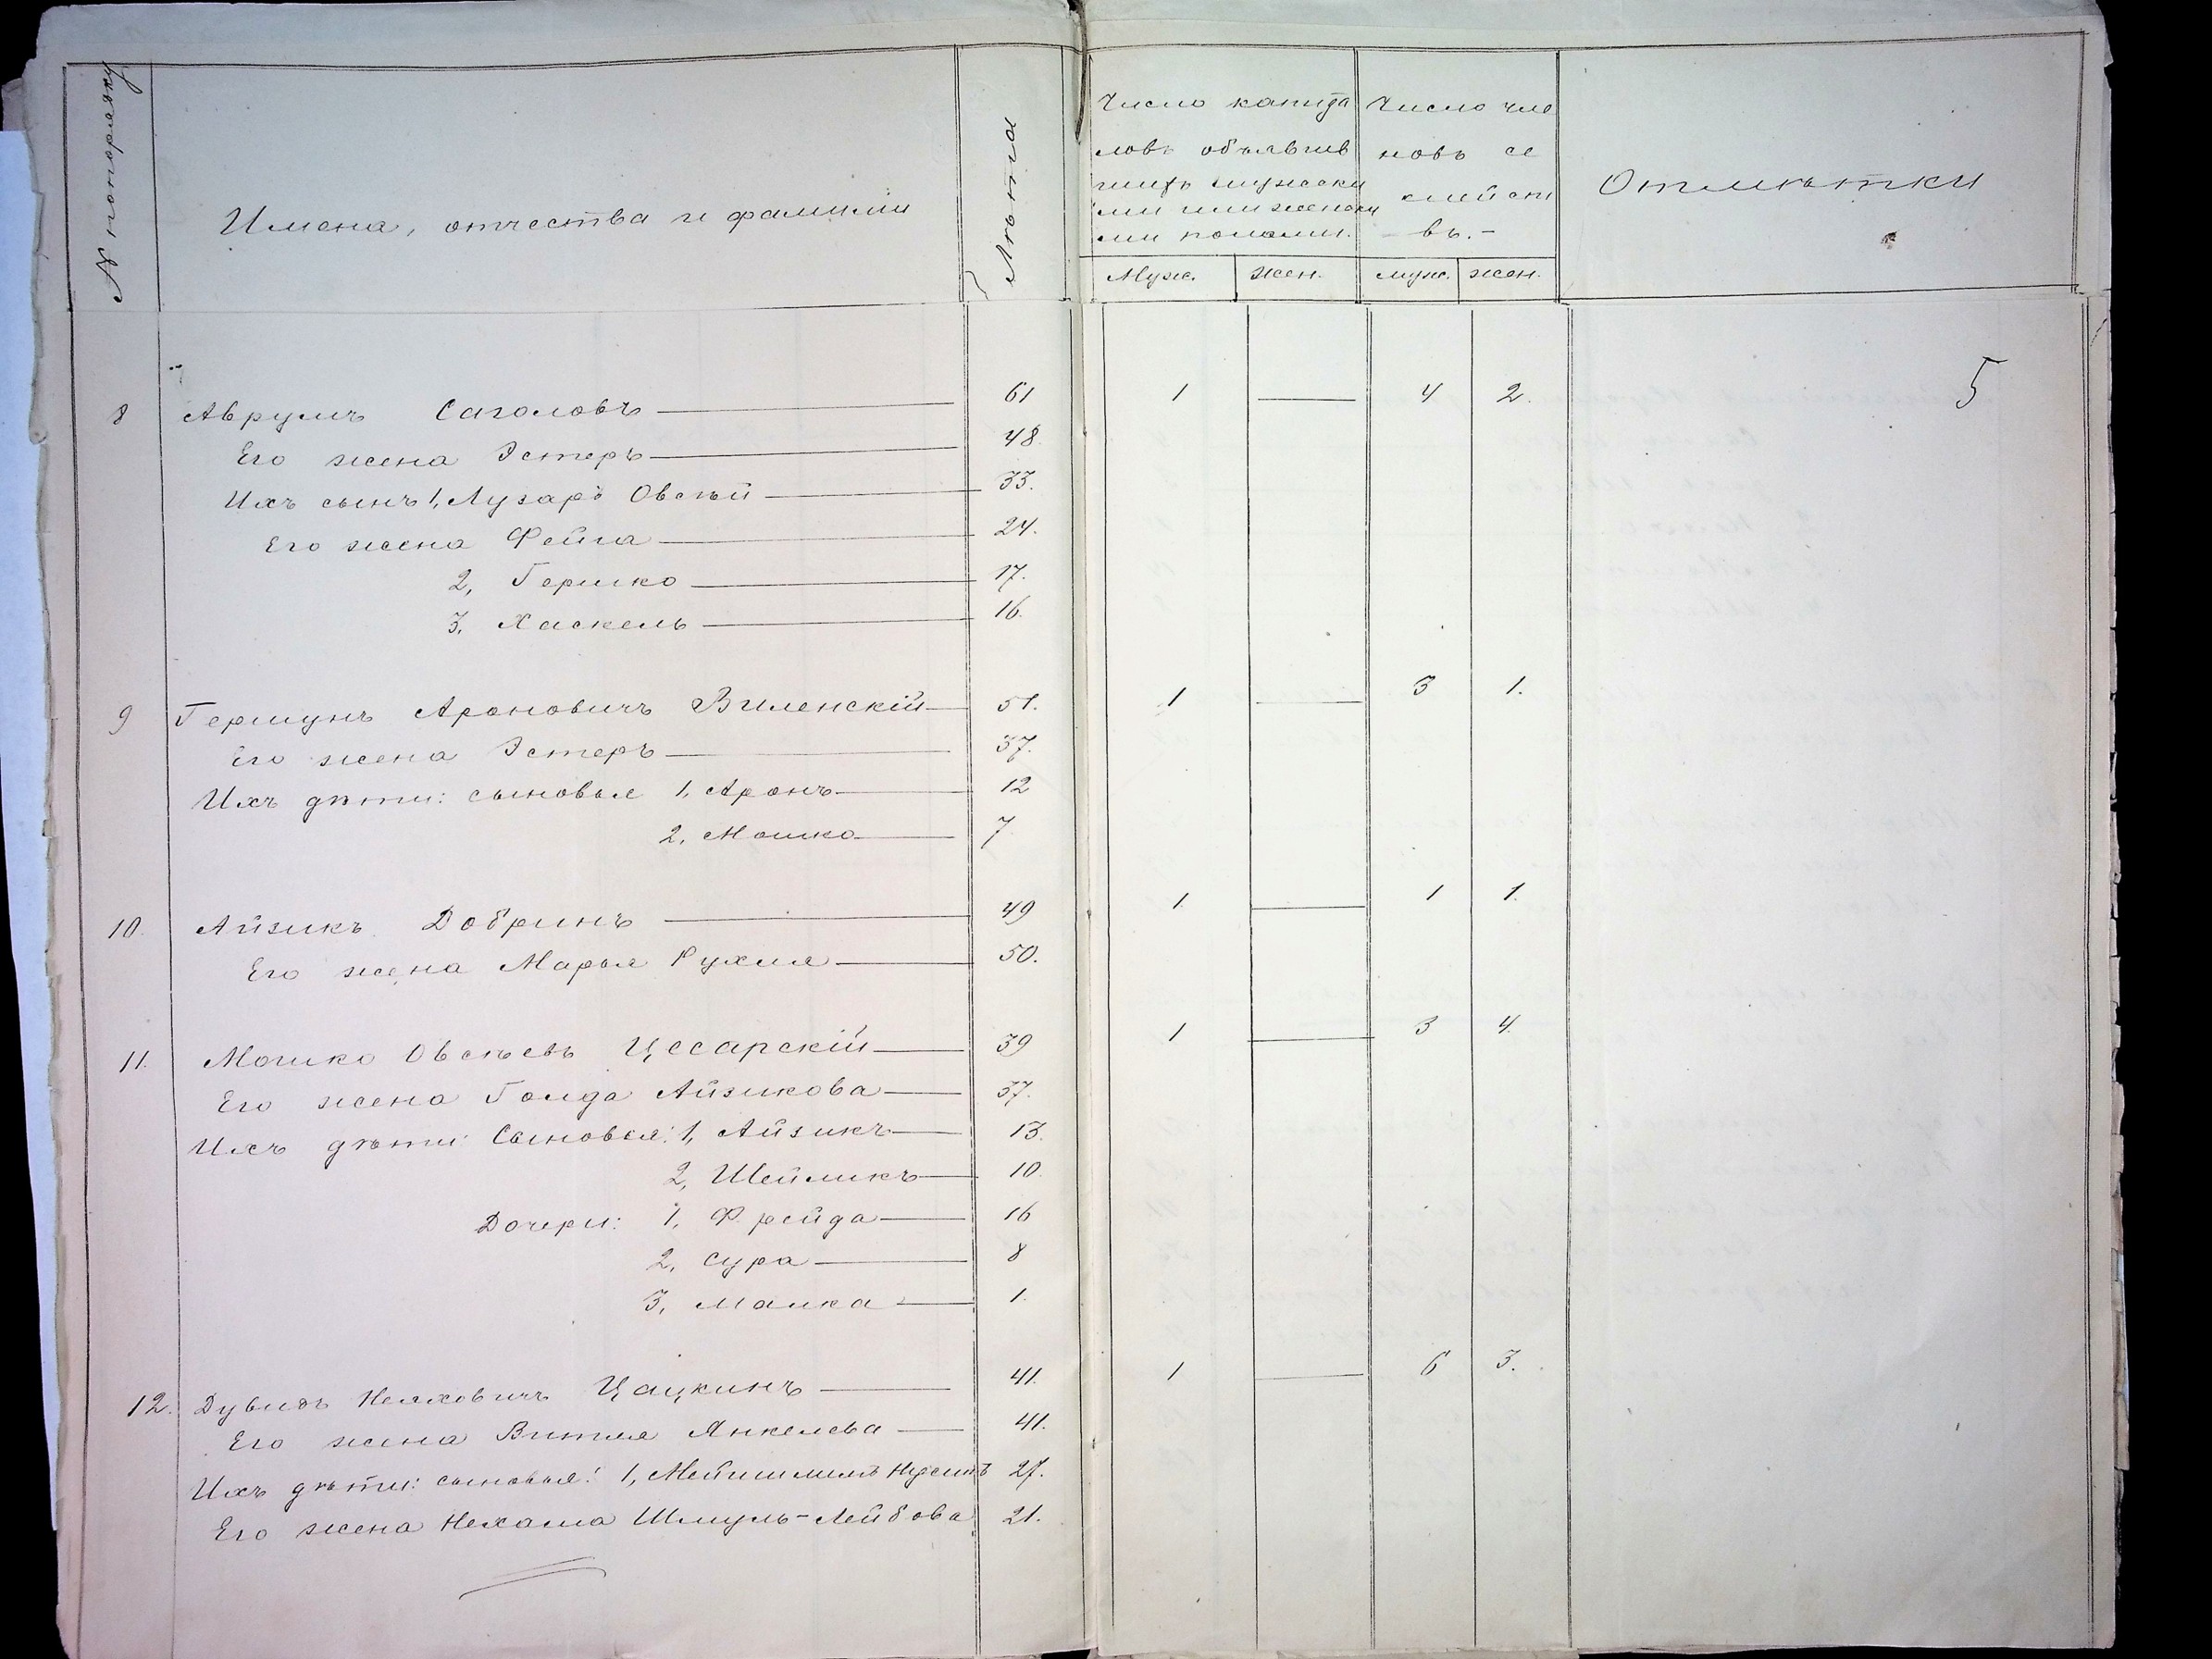 № по порядку
Имена, отчества и фамилии
Лѣта
Число капита
ловъ объявив
шихъ мужски
ми или женски
ми полами.
Муж. жен.
Число чле
новъ се
мейст
въ.-
муж. жен.
Отмѣтки
5
8 Аврумъ Саголовъ 61 1 — 4 2.
Его жена Эстеръ 48.
Ихъ сынъ 1, Лузаръ Овсѣй 33.
Его жена Фейга 24.
2, Гершко 17.
3, Хаскель 16.
9 Гершунъ Ароновичъ Виленскій 51. 1 — 3 1.
Его жена Эстеръ 37.
Ихъ дѣти: сыновья 1, Аронъ 12
2, Мошко 7
10. Айзикъ Добринъ 49 1 — 1 1.
Его жена Марья Рухля 50.
11. Мошко Овсѣевъ Цесарскій 39 1 — 3 4.
Его жена Голда Айзикова 37.
Ихъ дѣти: Сыновья: 1, Айзикъ 13.
2, Шейликъ 10.
Дочери: 1, Фрейда 16
2, Сура 8
3, Малка 1.
12. Дувидъ Неяховичъ Цацкинъ 41. 1 — 6 3.
Его жена Витля Янкелева 41.
Ихъ дѣти: сыновья: 1, 27.
Его жена Нехама Шмуль-Лейбова 21.